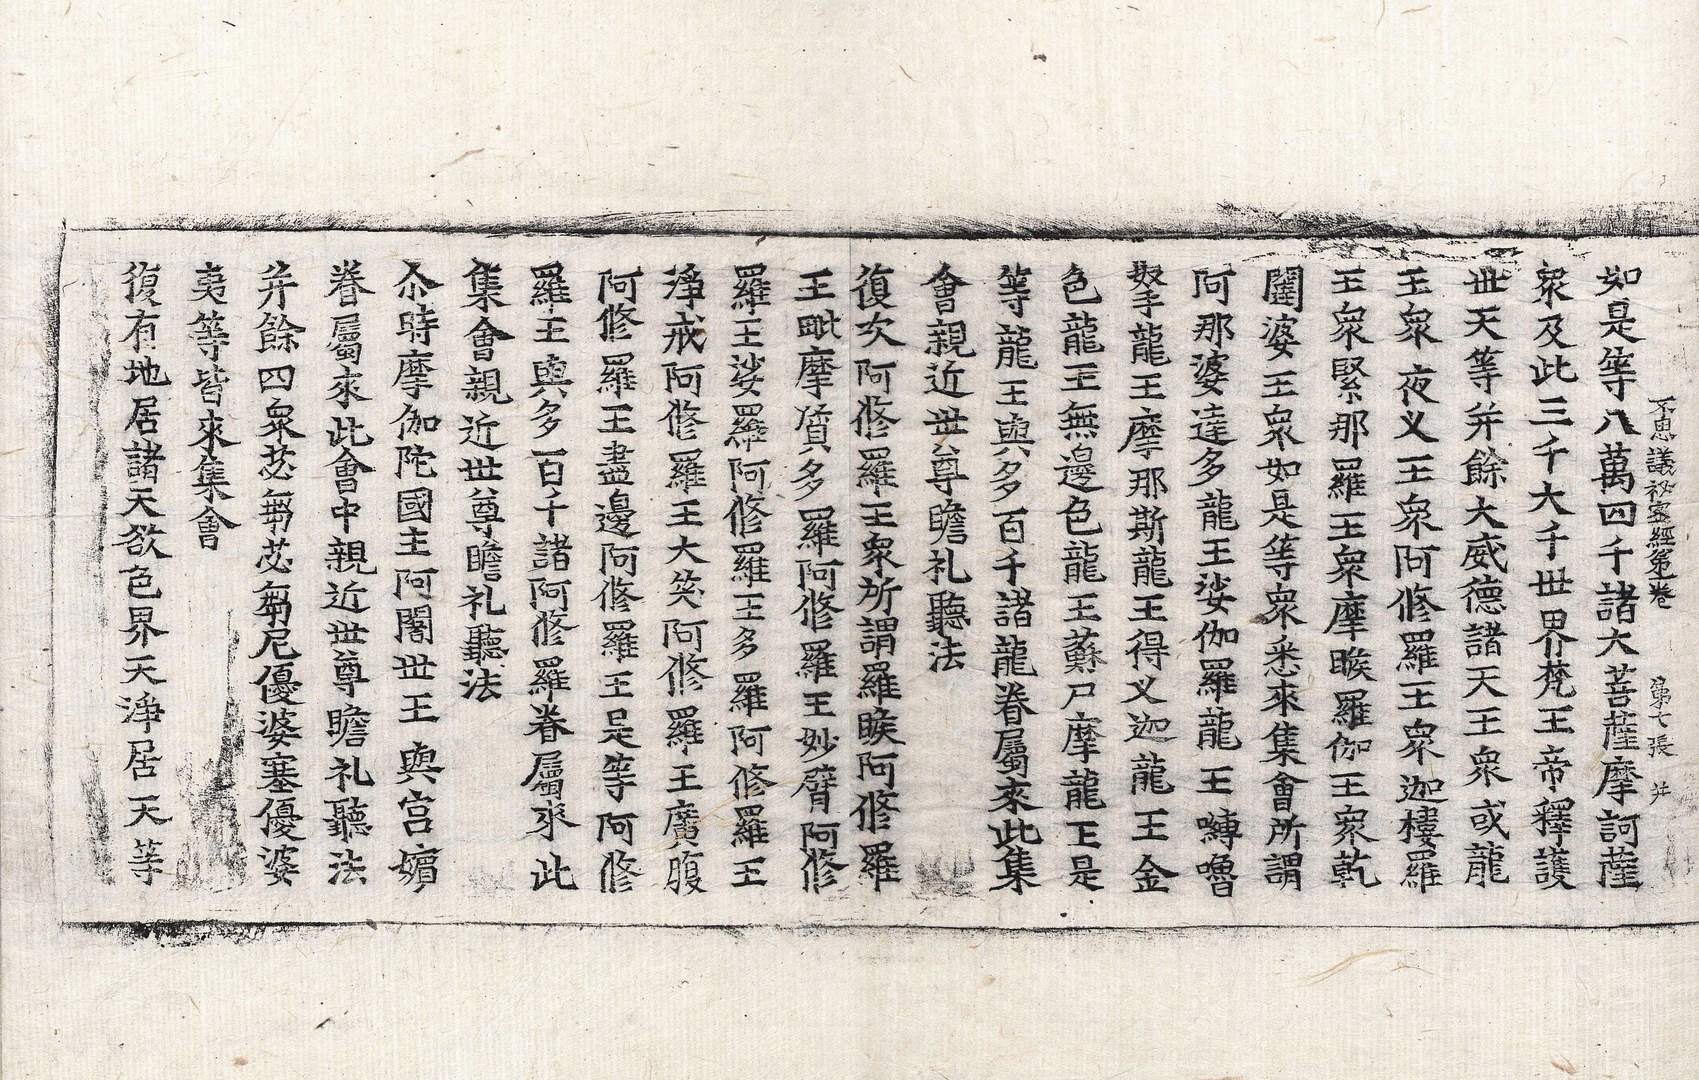 不思議祕密經第一卷 第七張 㐨
如是等八萬四千諸大菩薩摩訶薩
衆及此三千大千世界梵王帝釋護
世天等并餘大威德諸天王衆或龍
王衆夜叉王衆阿修羅王衆迦樓羅
王衆緊那羅王衆摩睺羅伽王衆乾
闥婆王衆如是等衆悉來集會所謂
阿那婆達多龍王娑伽羅龍王嚩嚕
拏龍王摩那斯龍王得叉迦龍王金
色龍王無邊色龍王蘇尸摩龍王是
等龍王與多百千諸龍眷屬來此集
會親近世尊瞻礼聽法
復次阿修羅王衆所謂羅睺阿修羅
王毗摩質多羅阿修羅王妙臂阿修
羅王娑羅阿修羅王多羅阿修羅王
淨戒阿修羅王大笑阿修羅王廣腹
阿修羅王盡邊阿修羅王是等阿修
羅王與多百千諸阿修羅眷屬來此
集會親近世尊瞻礼聽法
尒時摩伽陀國主阿闍世王與宮嬪
眷屬來此會中親近世尊瞻礼聽法
并餘四衆苾芻苾芻尼優婆塞優婆
夷等皆來集會
復有地居諸天欲色界天淨居天等